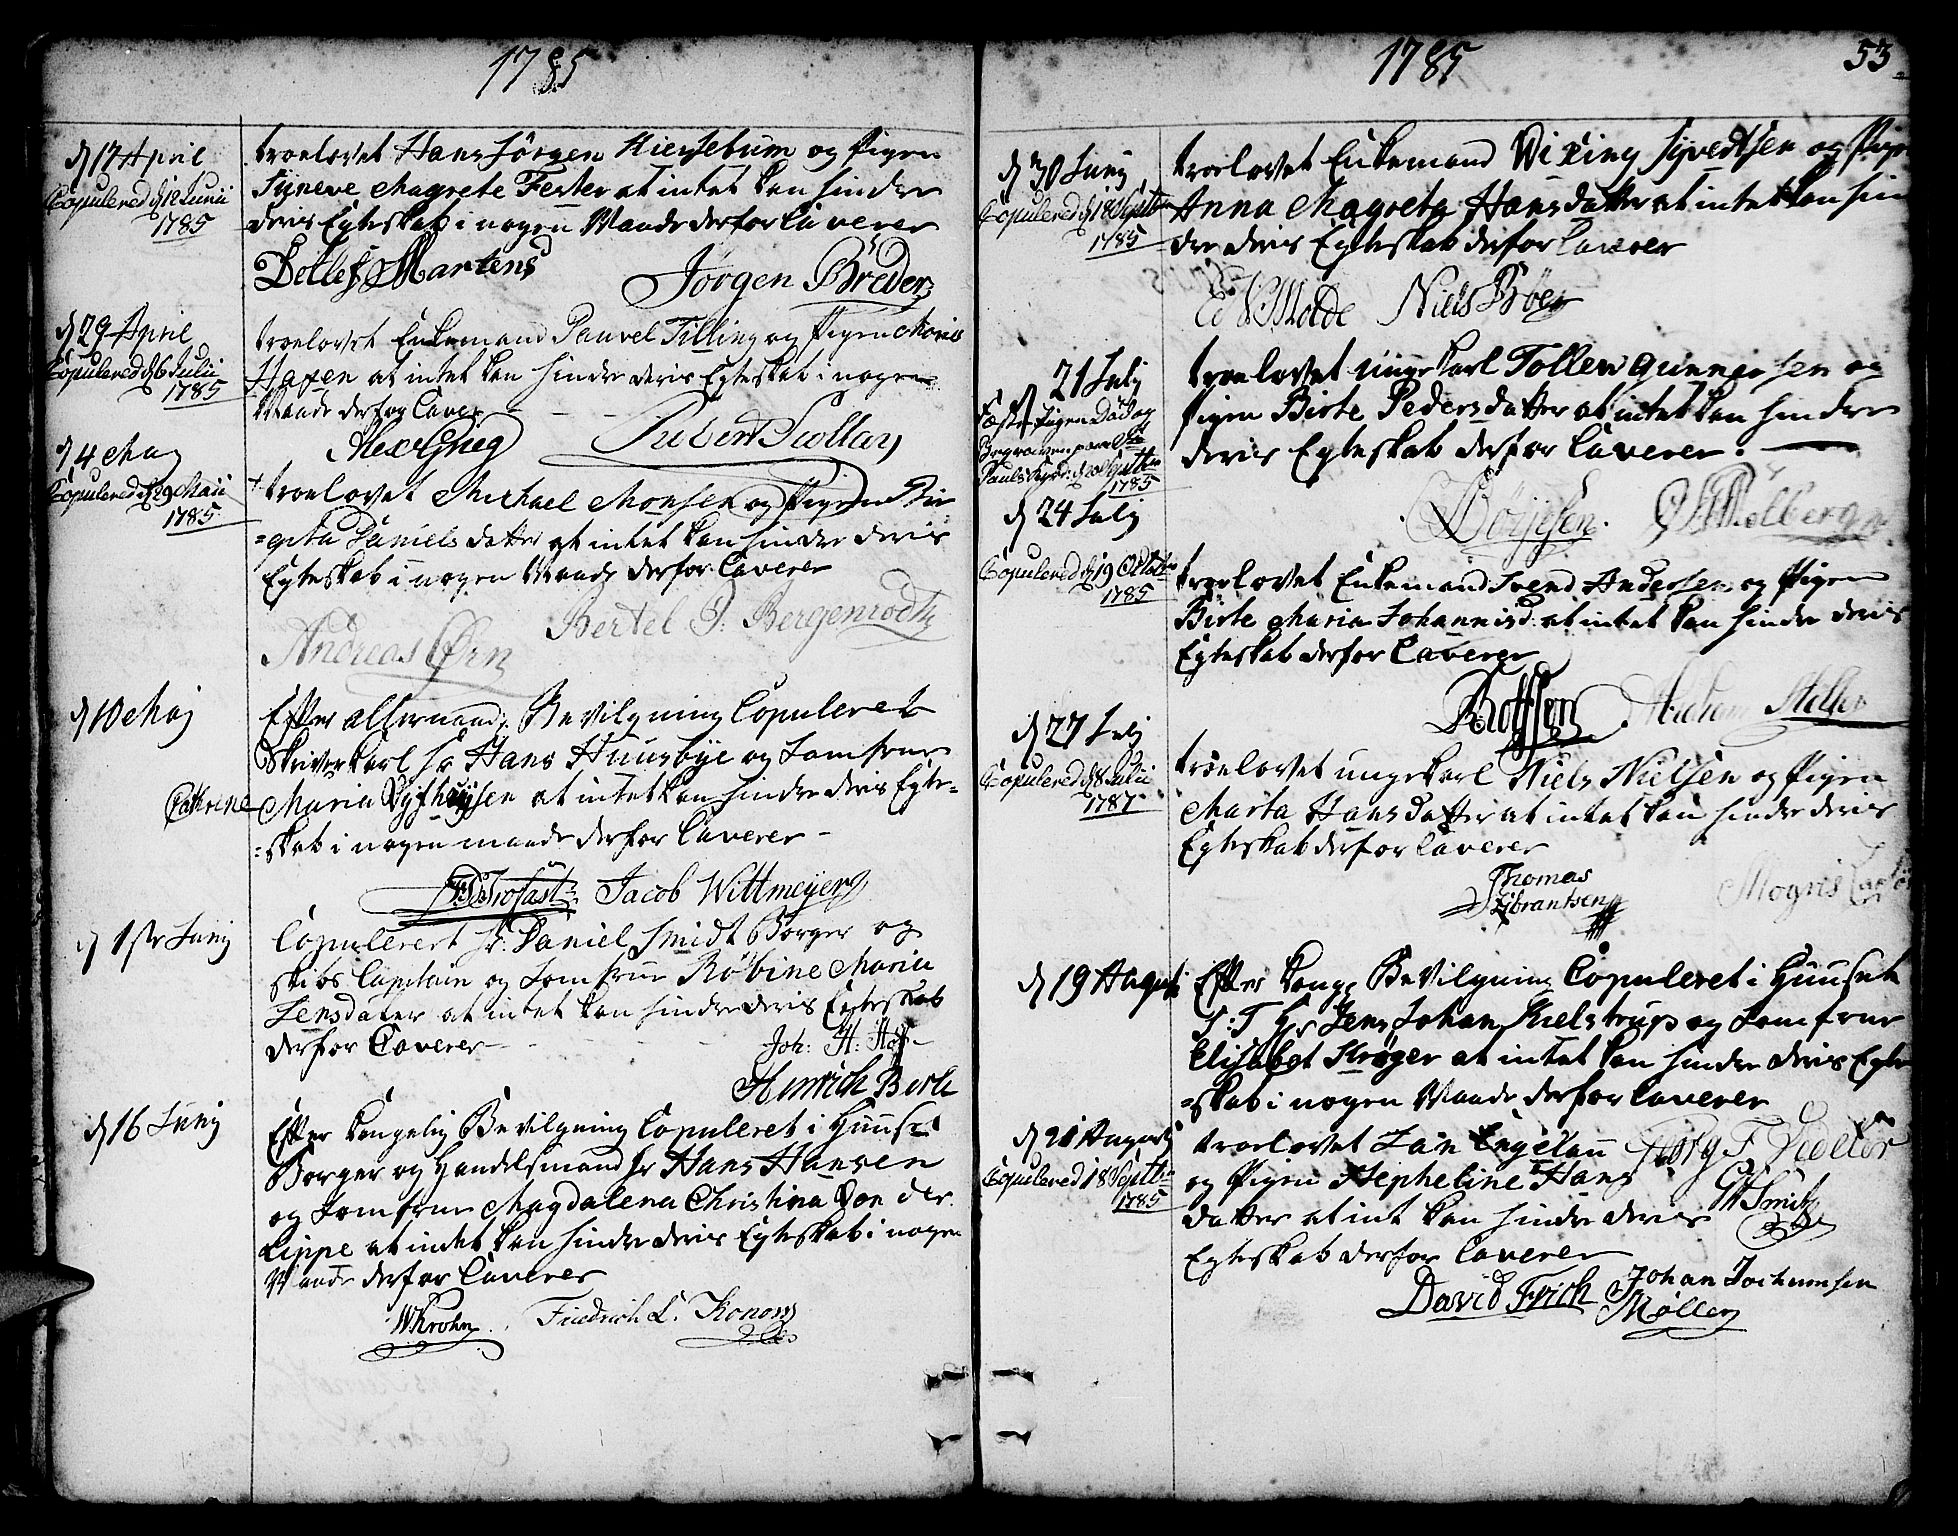 1785
d 17 April
Copulered d 12 Junii
1785
troelovet Hans Jörgen Kiersebum og Pigen
Syneve Magrete Fester at intet kan hindre
deris Egteskab i nogen Maade derfor Caverer
Detlef Martens
Jörgen Bröder
d 29 April
Copulered d 6 Julii
1785
troelovet Enkemand Pauvel Tilling og Pigen
Hagen at intet kan hindre deris Egteskab i nogen
Maade derfor Caver
Alex Grieg
d 4 Maj
Copulered d 29 Maii
1785
troelovet Michael Monsen og Pigen Bir
=gita Daniels datter at intet kan hindre deris
Egteskab i nogen Maade derfor Caverer
Bertel J. Bergenrodt
Andreas Ørn
d 10 Maj
Efter allernaad. Bevilgning Copuleret
Skriverkarl Sr Hans Huusbye og Jomfrue
Cathrine Maria Dyfhuysen at intet kan hindre deris Egte=
=skab i nogen maade derfor Caverer -
Jacob Wittmeyer
d 1ste Junij
Copuleret Sr. Daniel Smidt Borger og
skibs Capitain og Jomfrue Robine Maria
Jensdater at intet kan hindre deris Egteskab
derfor Caverer
Joh: H: Hoff
Hinrich Berle
d 16 Junij
Efter kongelig Bevilgning Copuleret i Huuset
Borger og Handelsmand Sr Hans Hansen
og Jomfrue Magdalena Christina von der
Lippe at indet kan hindre deris Egteskab i nogen
Maade derfor Caverer
WKrohn
Friedrich L. Konow
1785
53
d 30 Junij
Copulered d 18 Septbr
1785
troelovet Enkemand Wiking Syvedtsen og Pige
Anna Magreta Hans datter at intet kan hin
dre deris Egteskab derfor Caverer
Molde
Niels Böer
d 21 Julij
Fæste Pigen Död og
Begraven paa Sti
Pauls Kirke d. Septbr
1785
troelovet ungekarl Tollew Gunnersen og
Pigen Birte Peders datter at intet kan hindre
deris Egteskab derfor Caverer.
Börjesen.
d 24 Julij
Copulered d 19 Octobr
1785
troelovet Enkemand Svend Andersen og Pigen
Birte Maria Johannisd: at intet kan hindre deris
Egteskab derfor Caverer
d 27 Julij
Copulered d 8 Julii
1787
troelovet ungekarl Niels Nielsen og Pigen
Marta Hans datter at intet kan hindre deris
Egteskab derfor Caverer
Thomas
Zibrantsen
Mogris
d 19 August
Efter kong: Bevilgning Copuleret i Huuset
S: T Hr Jens Johan Kielstrup og Jomfrue
Elisabet Kröger at intet kan hindre deris Egte
=skab i nogen Maade derfor Caverer
d 21 Augusti
Copulered 18 Septbr
1785
troelovet Jan Engelau
og Pigen Hepheline Hans
datter at int kan hindre deris
Egteskab derfor Caverer
David Frich
Johan Jochumsen
Möller